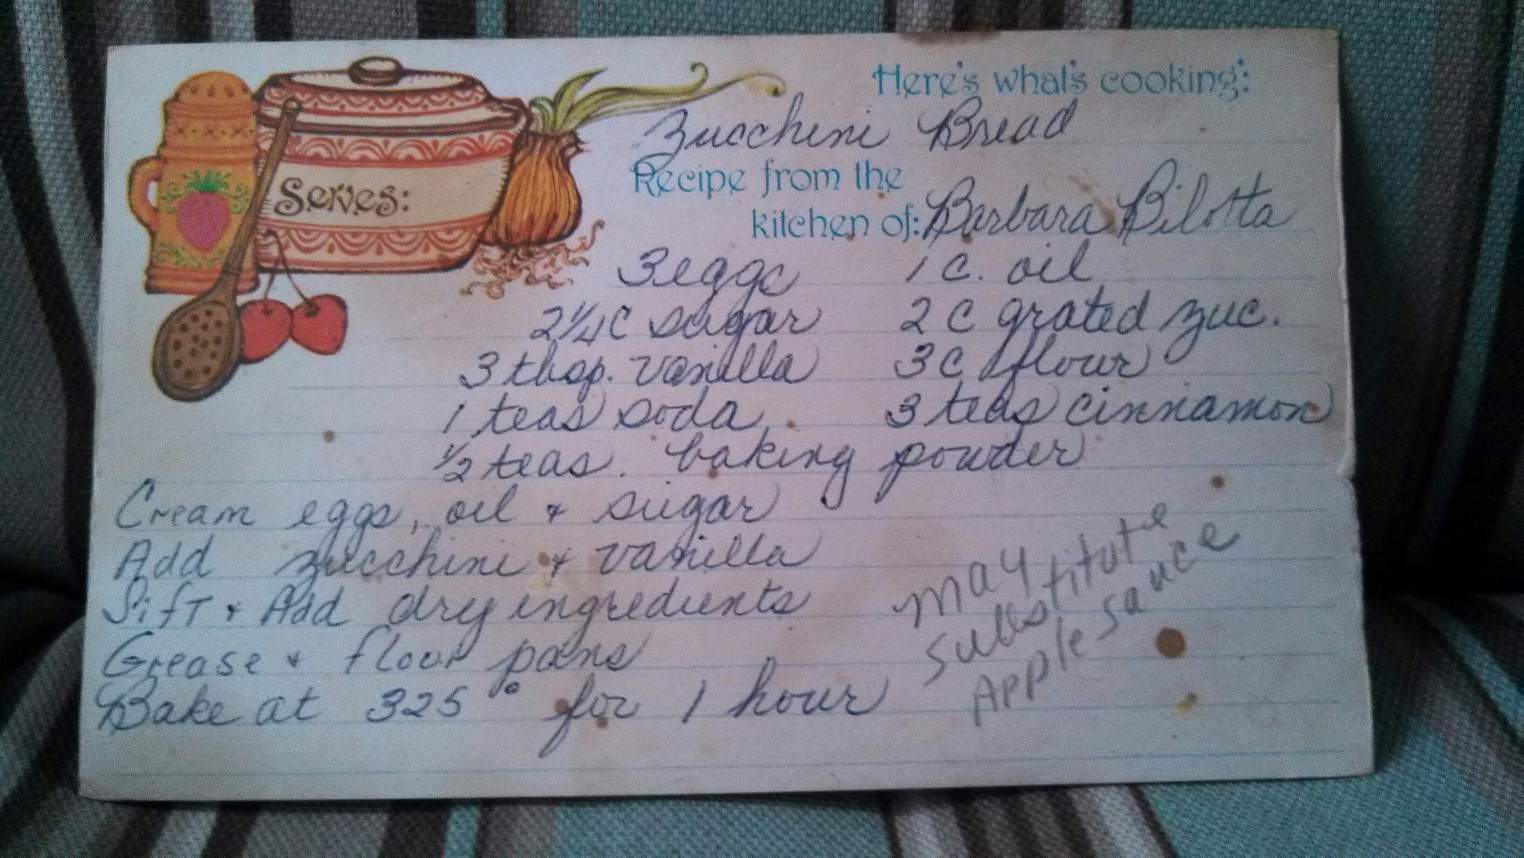 Here's what's cooking:
Zucchini Bread
Recipe from the
kitchen of: Barbara Bilotta
Serves:
3 eggs 1 c. oil
2 1/4 C sugar 2 C grated zuc.
3 tbsp. vanilla 3 C flour
1 teas soda 3 teas cinnamon
1/2 teas. baking powder
Cream eggs, oil & sugar
Add zucchini & vanilla
Sift & Add dry ingredients
Grease & flour pans
Bake at 325° for 1 hour
may
substitute
Apple sauce